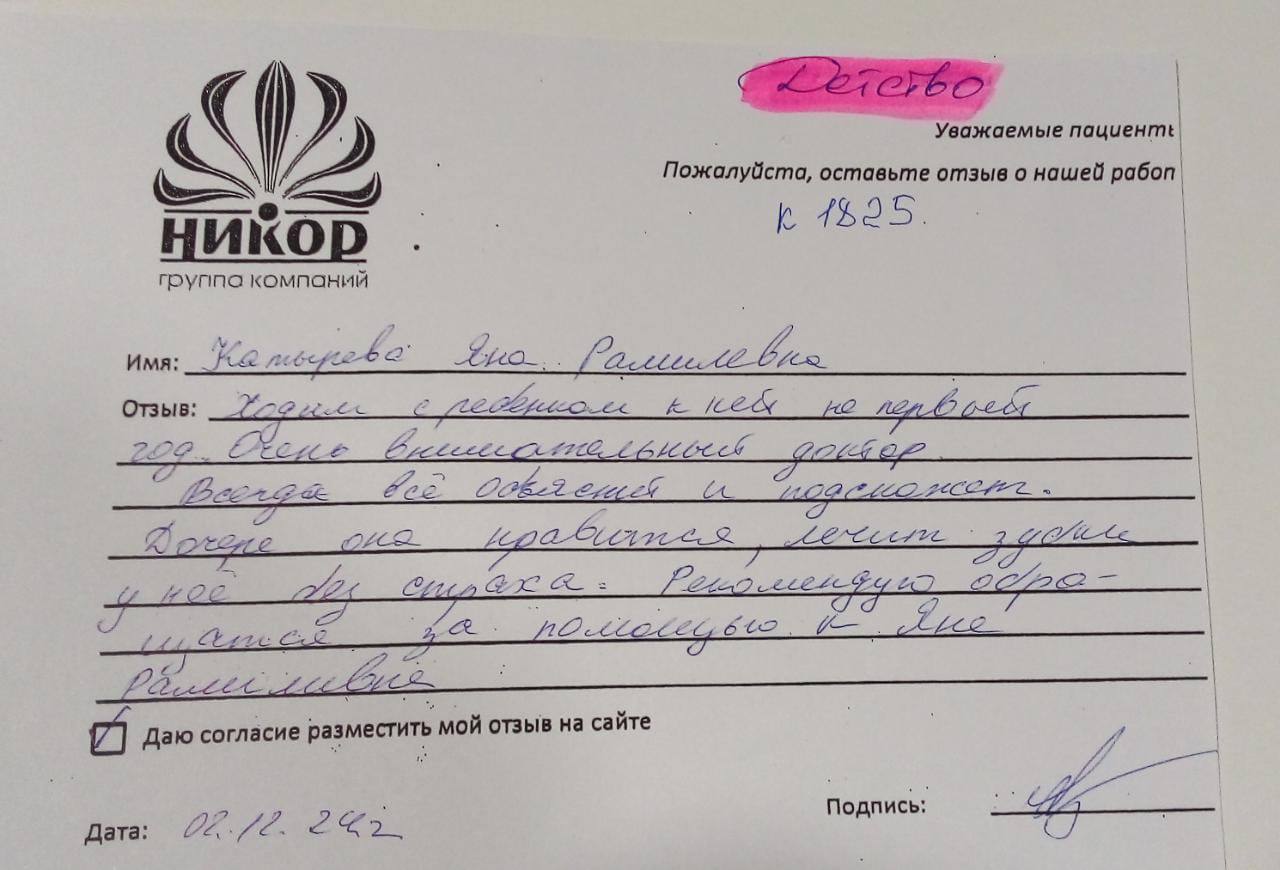 Детство
Уважаемые пациенты
Пожалуйста, оставьте отзыв о нашей работ
к 1825.
НИКОР
группа компаний
Имя: Катырева Яна Рамилевна
Отзыв: Ходим с ребенком к ней не первый
год. Очень внимательный доктор.
Всегда всё объяснит и подскажет.
Дочере она нравится, лечит зубки
у неё без страха. Рекомендую обра-
щатся за помощью к Яне
Рамиливне
Даю согласие разместить мой отзыв на сайте
Подпись:
Дата: 02.12.24г